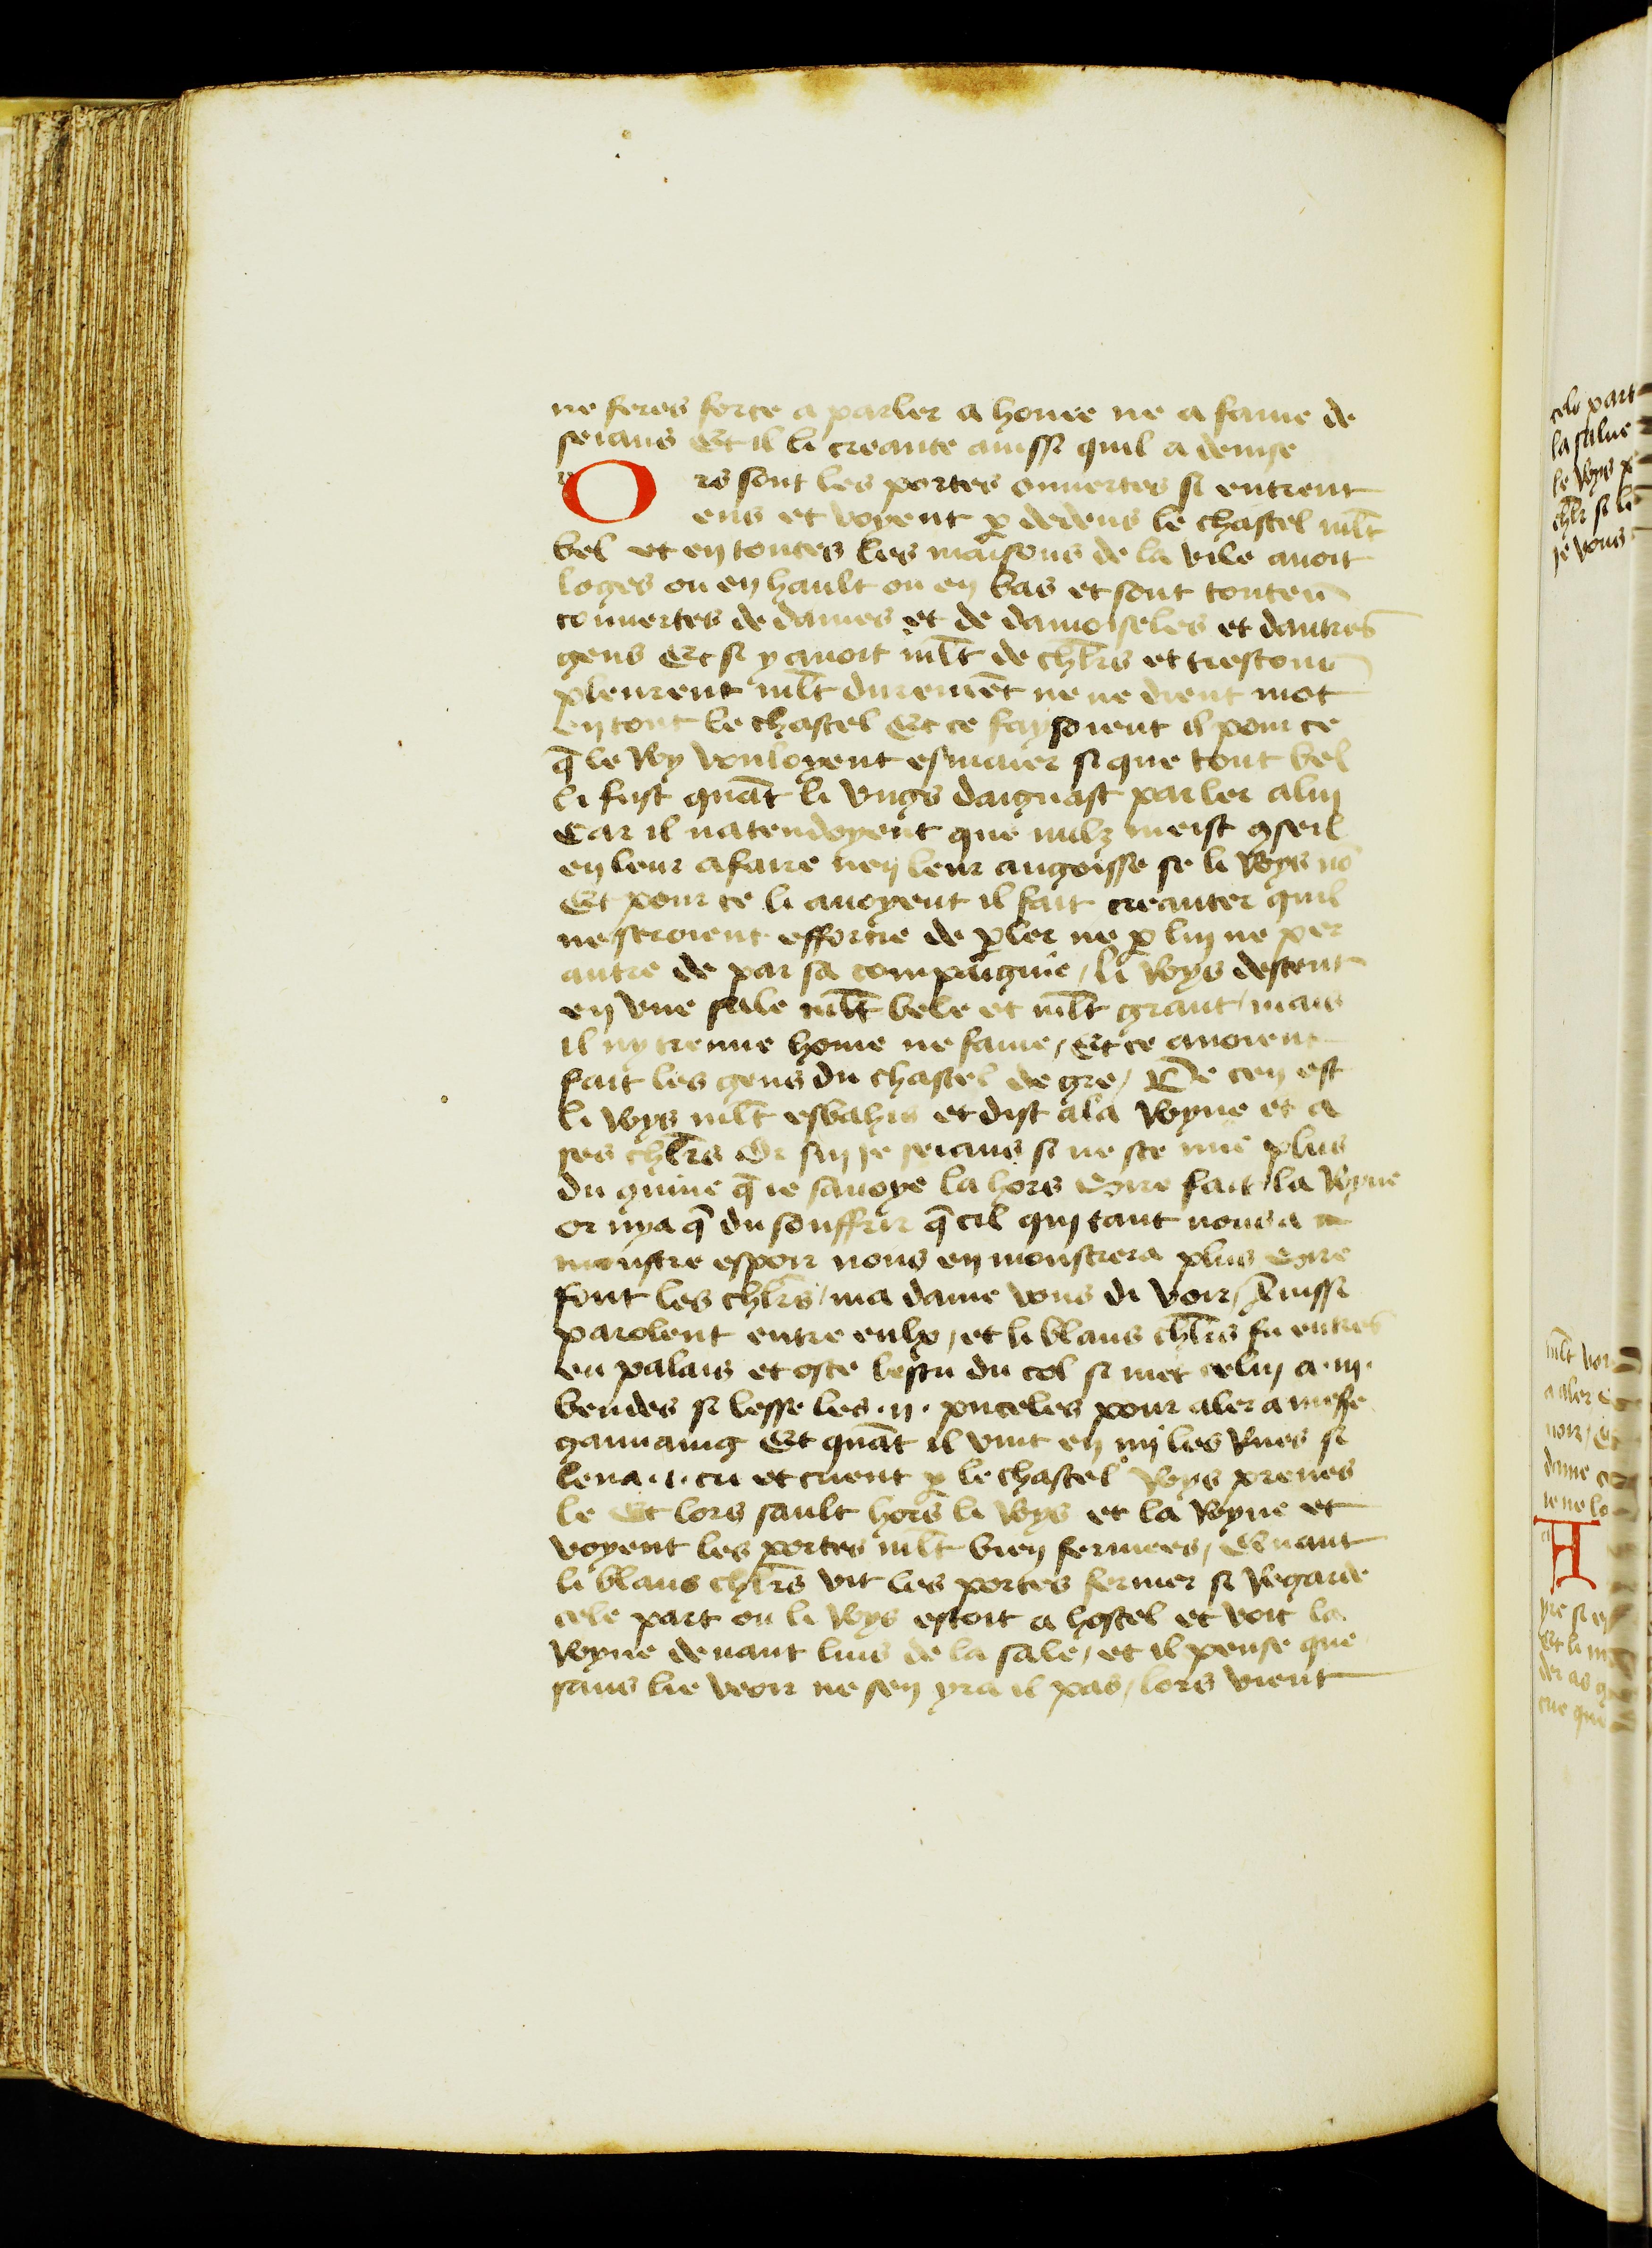 ne feres force a parler a home ne a fame de
seians Et il li creante aussi quil a deuise
Ors sont les portes ouuertes si entrent
ens et voyent ꝑ dedens le chastel ml̄t
bel et en toutes les maisons de la vile auoit
loges ou en hault ou en bas et sont toutes
couuertes de dames et de damoiseles et dautres
gens Et si y auoit ml̄t de chl̄rs et trestous
pleurent ml̄t duremēt ne ne dient mot
en tout le chastel Et ce faysoient il pour ce
q̄ le Roy vouloyent esmaier si que tout bel
li fust quāt li vngs daignast parler a luy
Car il natendoyent que nulz meist ꝯseil
en leur afaire nen leur angoisse se li Roys nō
Et pour ce li auoyent il fait creanter quil
ne seroient efforcie de ꝑler ne ꝑ luy ne per
autre de par sa compaignie / li Roys descent
en vne sale ml̄t bele et ml̄t grant / mais
il ny treuue home ne fame / Et ce auoient
fait les gens du chastel de gre / De cen est
li Roys ml̄t esbahis et dist a la Royne et a
ses chl̄rs Or suy ie seians si ne sce mie plus
du gnine q̄ ie sauoye la hors Sire fait la Royne
or ny a q̄ du souffrir q̄ cil qui tant nous a
monstre espoir nous en monstrera plus Sire
font les chl̄rs / ma dame vous di voir / Aussi
parolent entre eulx / et li blans chl̄rs fu entres
eu palais et oste lescu du col si met celuy a .iii.
bendes si lesse les .ii. puceles pour aler a messe
gauuaing Et quāt il vint en my les Rues si
leua .i. cri et crient ꝑ le chastel Roys prenes
le Et lors sault hors li Roys et la Royne et
voyent les portes ml̄t bien fermees / Quant
li blans chl̄rs vit les portes fermer si Regarde
cele part ou li Roys estoit a hostel et voit la
Royne deuant luis de la sale / et il pense que
sans lie veoir ne sen yra il pas / lors vient